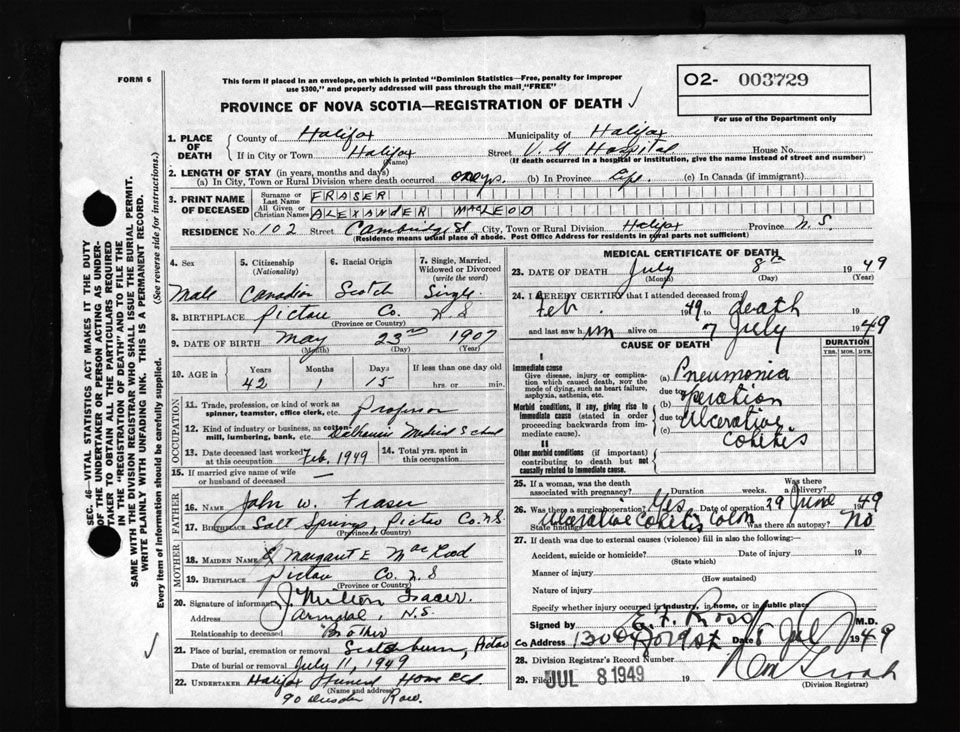 FORM 6
This form if placed in an envelope, on which is printed "Dominion Statistics—Free, penalty for improper
use $300," and properly addressed will pass through the mail "FREE"
O2- 003729
For use of the Department only
PROVINCE OF NOVA SCOTIA—REGISTRATION OF DEATH
1. PLACE OF DEATH County of Halifax Municipality of Halifax
If in City or Town Halifax (Name) Street V. G Hospital House No.
(If death occurred in a hospital or institution, give the name instead of street and number)
2. LENGTH OF STAY (in years, months and days)
(a) In City, Town or Rural Division where death occurred (b) In Province Life (c) In Canada (if immigrant)
3. PRINT NAME OF DECEASED Surname or Last Name FRASER
All Given or Christian Names ALEXANDER MacLEOD
RESIDENCE No. 102 Street Cambridge St City, Town or Rural Division Halifax Province N.S.
(Residence means usual place of abode. Post Office Address for residents in rural parts not sufficient)
SEC. 46—VITAL STATISTICS ACT MAKES IT THE DUTY
OF THE UNDERTAKER OR PERSON ACTING AS UNDER-
TAKER TO OBTAIN ALL THE PARTICULARS REQUIRED
IN THE "REGISTRATION OF DEATH" AND TO FILE THE
SAME WITH THE DIVISION REGISTRAR WHO SHALL ISSUE THE BURIAL PERMIT.
WRITE PLAINLY WITH UNFADING INK. THIS IS A PERMANENT RECORD.
Every item of information should be carefully supplied. (See reverse side for instructions.)
4. Sex 5. Citizenship (Nationality) 6. Racial Origin 7. Single, Married, Widowed or Divorced (write the word)
Male Canadian Scotch Single
8. BIRTHPLACE Pictou Co. N.S
(Province or Country)
9. DATE OF BIRTH May 23rd 1907
(Month) (Day) (Year)
10. AGE in Years Months Days If less than one day old
42 1 15 hrs. or min.
OCCUPATION
11. Trade, profession, or kind of work as spinner, teamster, office clerk, etc. Professor
12. Kind of industry or business, as cotton mill, lumbering, bank, etc. Dalhousie Medical School
13. Date deceased last worked at this occupation Feb. 1949 14. Total yrs. spent in this occupation
15. If married give name of wife or husband of deceased
FATHER
16. NAME John W. Fraser
17. BIRTHPLACE Salt Springs, Pictou Co. N.S.
(Province or Country)
MOTHER
18. MAIDEN NAME Margaret E MacLeod
19. BIRTHPLACE Pictou Co. N.S
(Province or Country)
20. Signature of informant J. Milton Fraser.
Address Armdale, N.S.
Relationship to deceased Brother
21. Place of burial, cremation or removal Scotsburn, Pictou
Date of burial or removal July 11, 1949
22. UNDERTAKER Halifax Funeral Home
(Name and address)
90 Row.
MEDICAL CERTIFICATE OF DEATH
23. DATE OF DEATH July 8th 1949
(Month) (Day) (Year)
24. I HEREBY CERTIFY that I attended deceased from
Feb. 1949 to death
and last saw him alive on 7 July 1949
CAUSE OF DEATH DURATION
YRS. MOS. DYS.
I
Immediate cause
Give disease, injury or complication which caused death, not the mode of dying, such as heart failure, asphyxia, asthenia, etc.
(a) Pneumonia
due to
(b) Operation
Morbid conditions, if any, giving rise to immediate cause (stated in order proceeding backwards from immediate cause).
due to
(c) Ulcerative Colitis
II
Other morbid conditions (if important) contributing to death but not causally related to immediate cause.
25. If a woman, was the death associated with pregnancy? Duration weeks. Was there a delivery?
26. Was there a surgical operation? Yes Date of operation 29 June 1949
State findings Ulcerative Colitis Colon Was there an autopsy? No
27. If death was due to external causes (violence) fill in also the following:—
Accident, suicide or homicide? Date of injury 19
(State which)
Manner of injury
(How sustained)
Nature of injury
Specify whether injury occurred in industry, in home, or in public place
Signed by E. F. Ross M.D.
Address Date 8 Jul 1949
28. Division Registrar's Record Number
29. Filed JUL 8 1949 19
(Division Registrar)